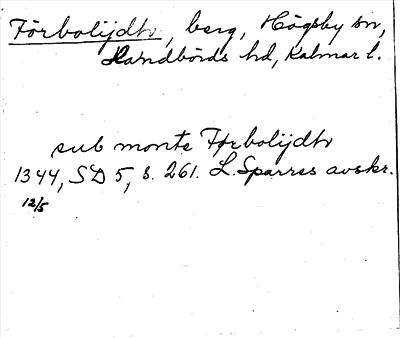 Förbolijdhr, berg, Högsby sn,
Handbörds hd, Kalmar l.
sub monte Förbolijdhr
1344, SD 5, s. 261. L. Sparres avskr.
12/5